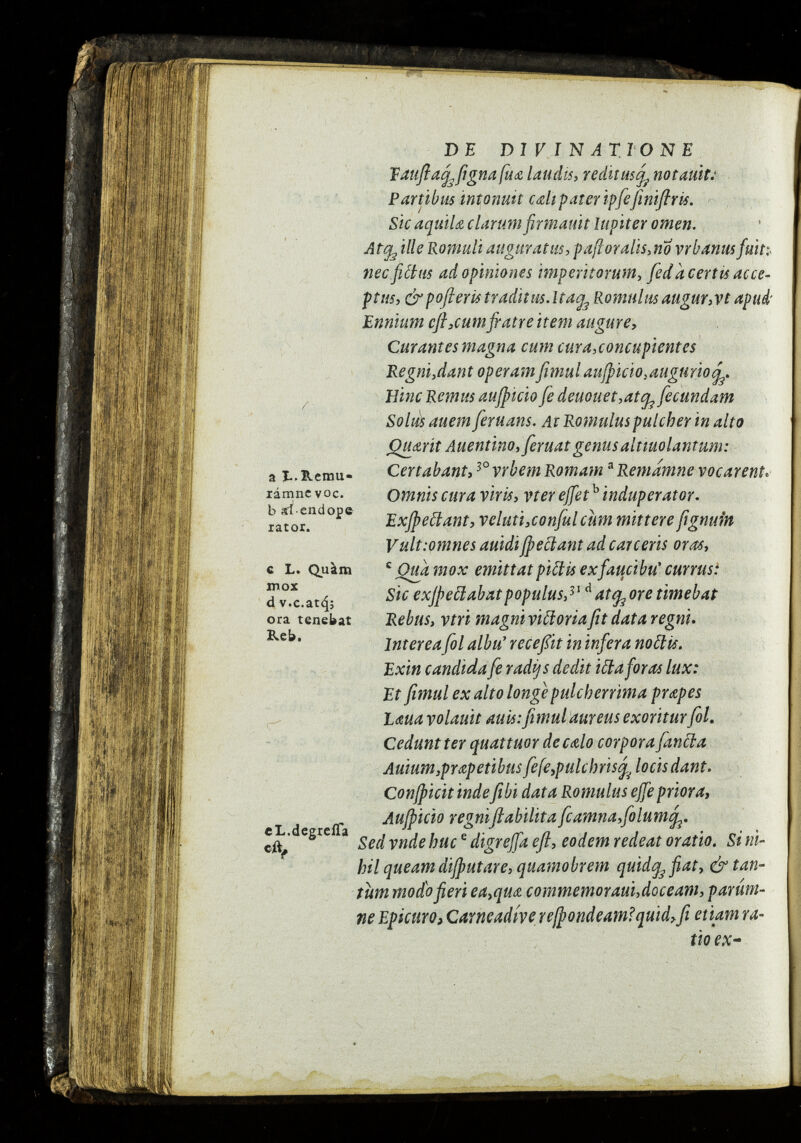 DE DIVINATIONE
Fauſtaq́; ſigna ſuæ laudis, reditusq́; notauit:
Partibus intonuit cæli pater ipſe ſiniſtris.
Sic aquilæ clarum firmauit Iupiter omen.
Atq́; ille Romuli auguratus, paſtoralis, nō vrbanus fuit:
nec fictus ad opiniones imperitorum, ſed à certis acce-
ptus, & poſteris traditus. Itaq́; Romulus augur, vt apud
Ennium eſt, cum fratre item augure,
Curantes magna cum cura, concupientes
Regni, dant operam ſimul auſpicio, augurioq́;.
Hinc Remus auſpicio ſe deuouet, atq́; ſecundam
Solus auem ſeruans. At Romulus pulcher in alto
Quærit Auentino, ſeruat genus altiuolantum:
Certabant, 30 vrbem Romam a Remámne vocarent.
Omnis cura viris, vter eſſet b induperator.
Exſpectant, veluti, conſul cùm mittere ſignum
Vult: omnes auidi ſpectant ad carceris oras,
c Quà mox emittat pictis ex faucibu' currus:
Sic exſpectabat populus, 31 d atq́; ore timebat
Rebus, vtri magni victoria ſit data regni.
Interea ſol albu' receßit in infera noctis.
Exin candida ſe radijs dedit icta foras lux:
Et ſimul ex alto longè pulcherrima præpes
Læua volauit auis: ſimul aureus exoritur ſol.
Cedunt ter quattuor de cælo corpora ſancta
Auium, præpetibus ſeſe, pulchrisq́; locis dant.
Conſpicit inde ſibi data Romulus eſſe priora,
Auſpicio regni ſtabilita ſcamna, ſolumq́;.
Sed vnde huc e digreſſa eſt, eodem redeat oratio. Si ni-
hil queam diſputare, quamobrem quidq́; fiat, & tan-
tùm modò fieri ea, quæ commemoraui, doceam, parúm-
ne Epicuro, Carneadíve reſpondeam? quid, ſi etiam ra-
tio ex-
a L. Remu-
rámne voc.
b al. endope
rator.
c L. Quàm
mox
d v.c. atq́;
ora tenebat
Reb.
e L. degreſſa
eſt,